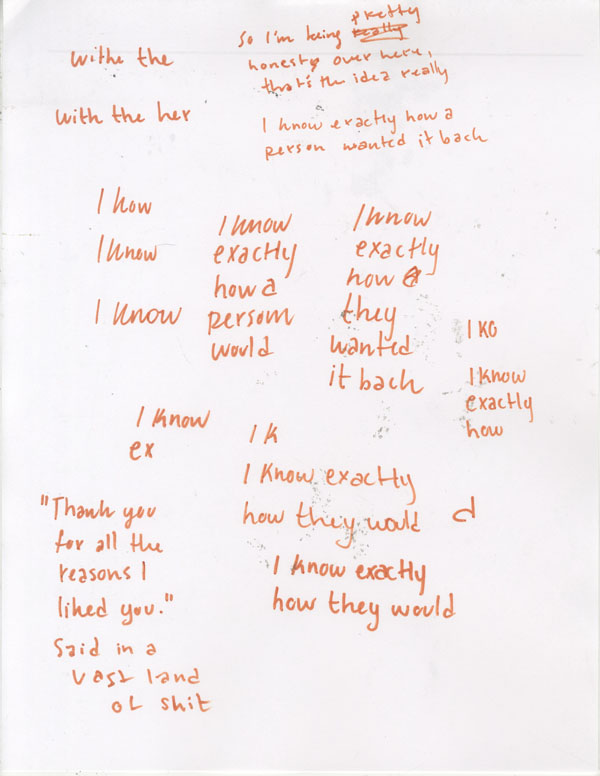 withe the
so I'm being pretty really
honesty over here,
that's the idea really
with the her
I know exactly how a
person wanted it back
I how
I know
I know
I know
exactly
how a
person
would
I know
exactly
how a
they
wanted
it back
I KO
I know
exactly
how
I know
ex
I K
I know exactly
how they would d
I know exactly
how they would
"Thank you
for all the
reasons I
liked you."
Said in a
vast land
of shit